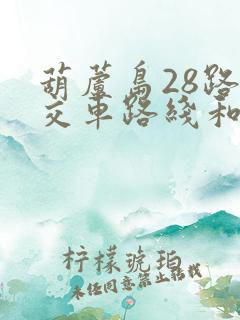 葫蘆島28路
交車路綫和
柠檬琥珀
未经同意禁止转载